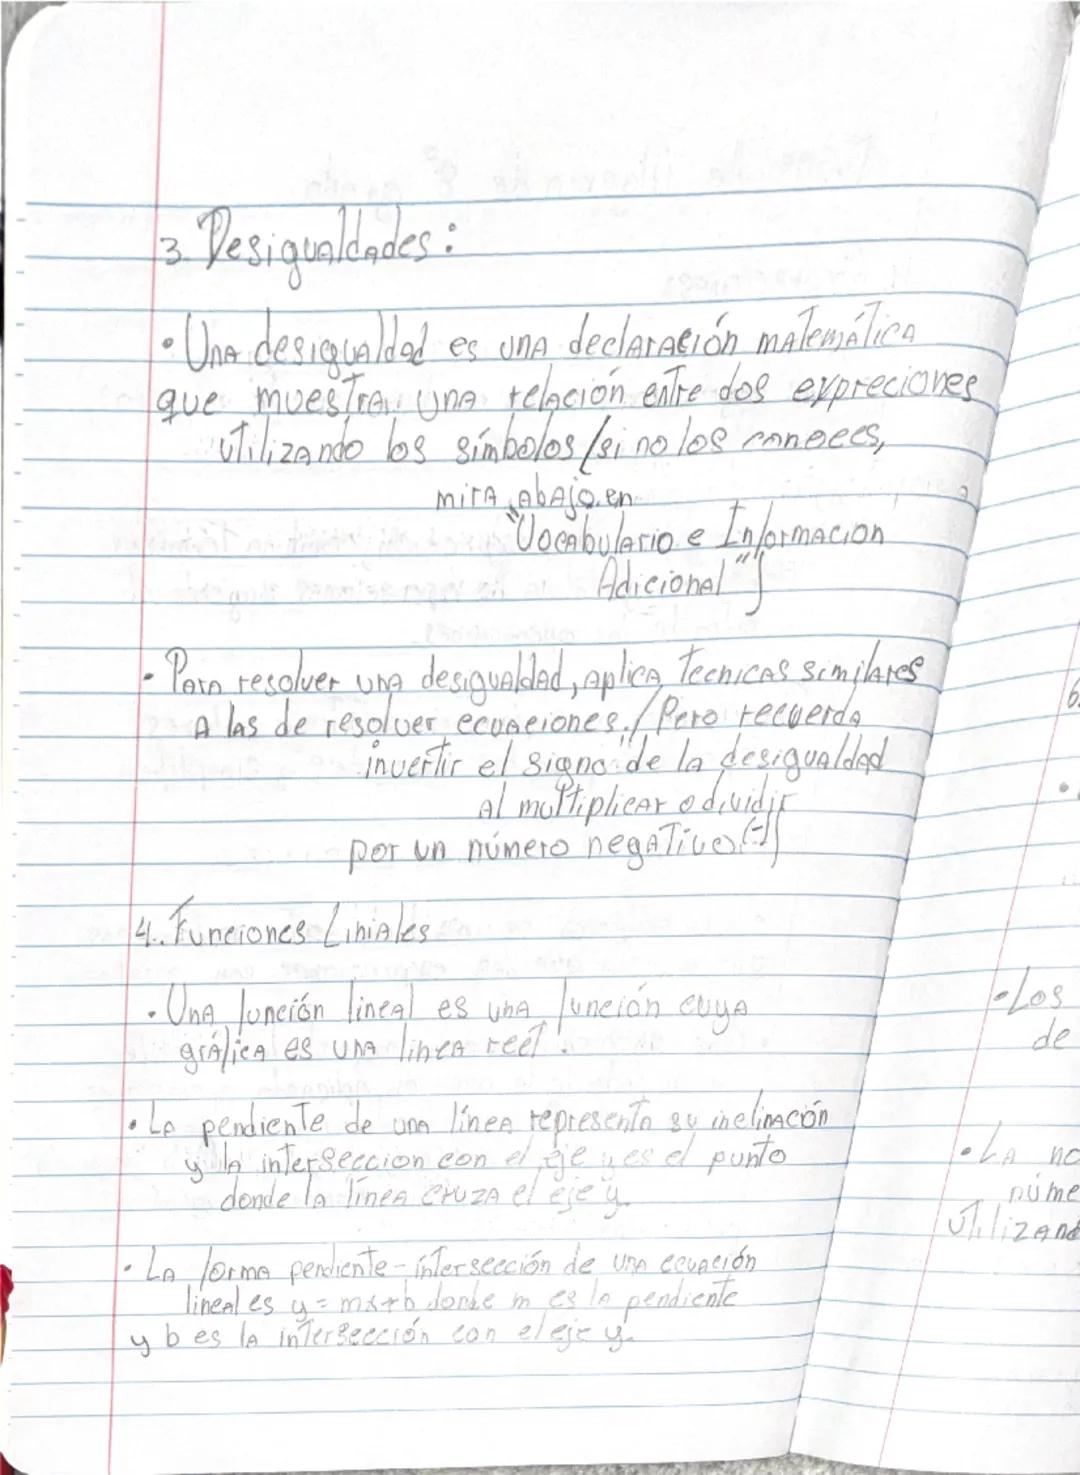 3. Desigualdades:
• Una desigualdad es una declaración matemática
que muestra una relación entre dos expreciones
utilizando los símbolos (si no los conoces,
mira abajo en
"Vocabulario e Informacion
Adicional")
• Para resolver una desigualdad, aplica tecnicas similares
a las de resolver ecuaciones. (Pero recuerda
invertir el signo de la desigualdad
al multiplicar o dividir
por un número negativo (-))
4. Funciones Liniales
• Una función lineal es una función cuya
gráfica es una linea rect.
• La pendiente de una línea representa su inclinación
y la interseccion con el eje y es el punto
donde la línea cruza el eje y.
• La forma pendiente-intersección de una ecuación
lineal es y = mx+b donde m es la pendiente
y b es la intersección con el eje y.
• Los
de
• La no
núme
utilizand